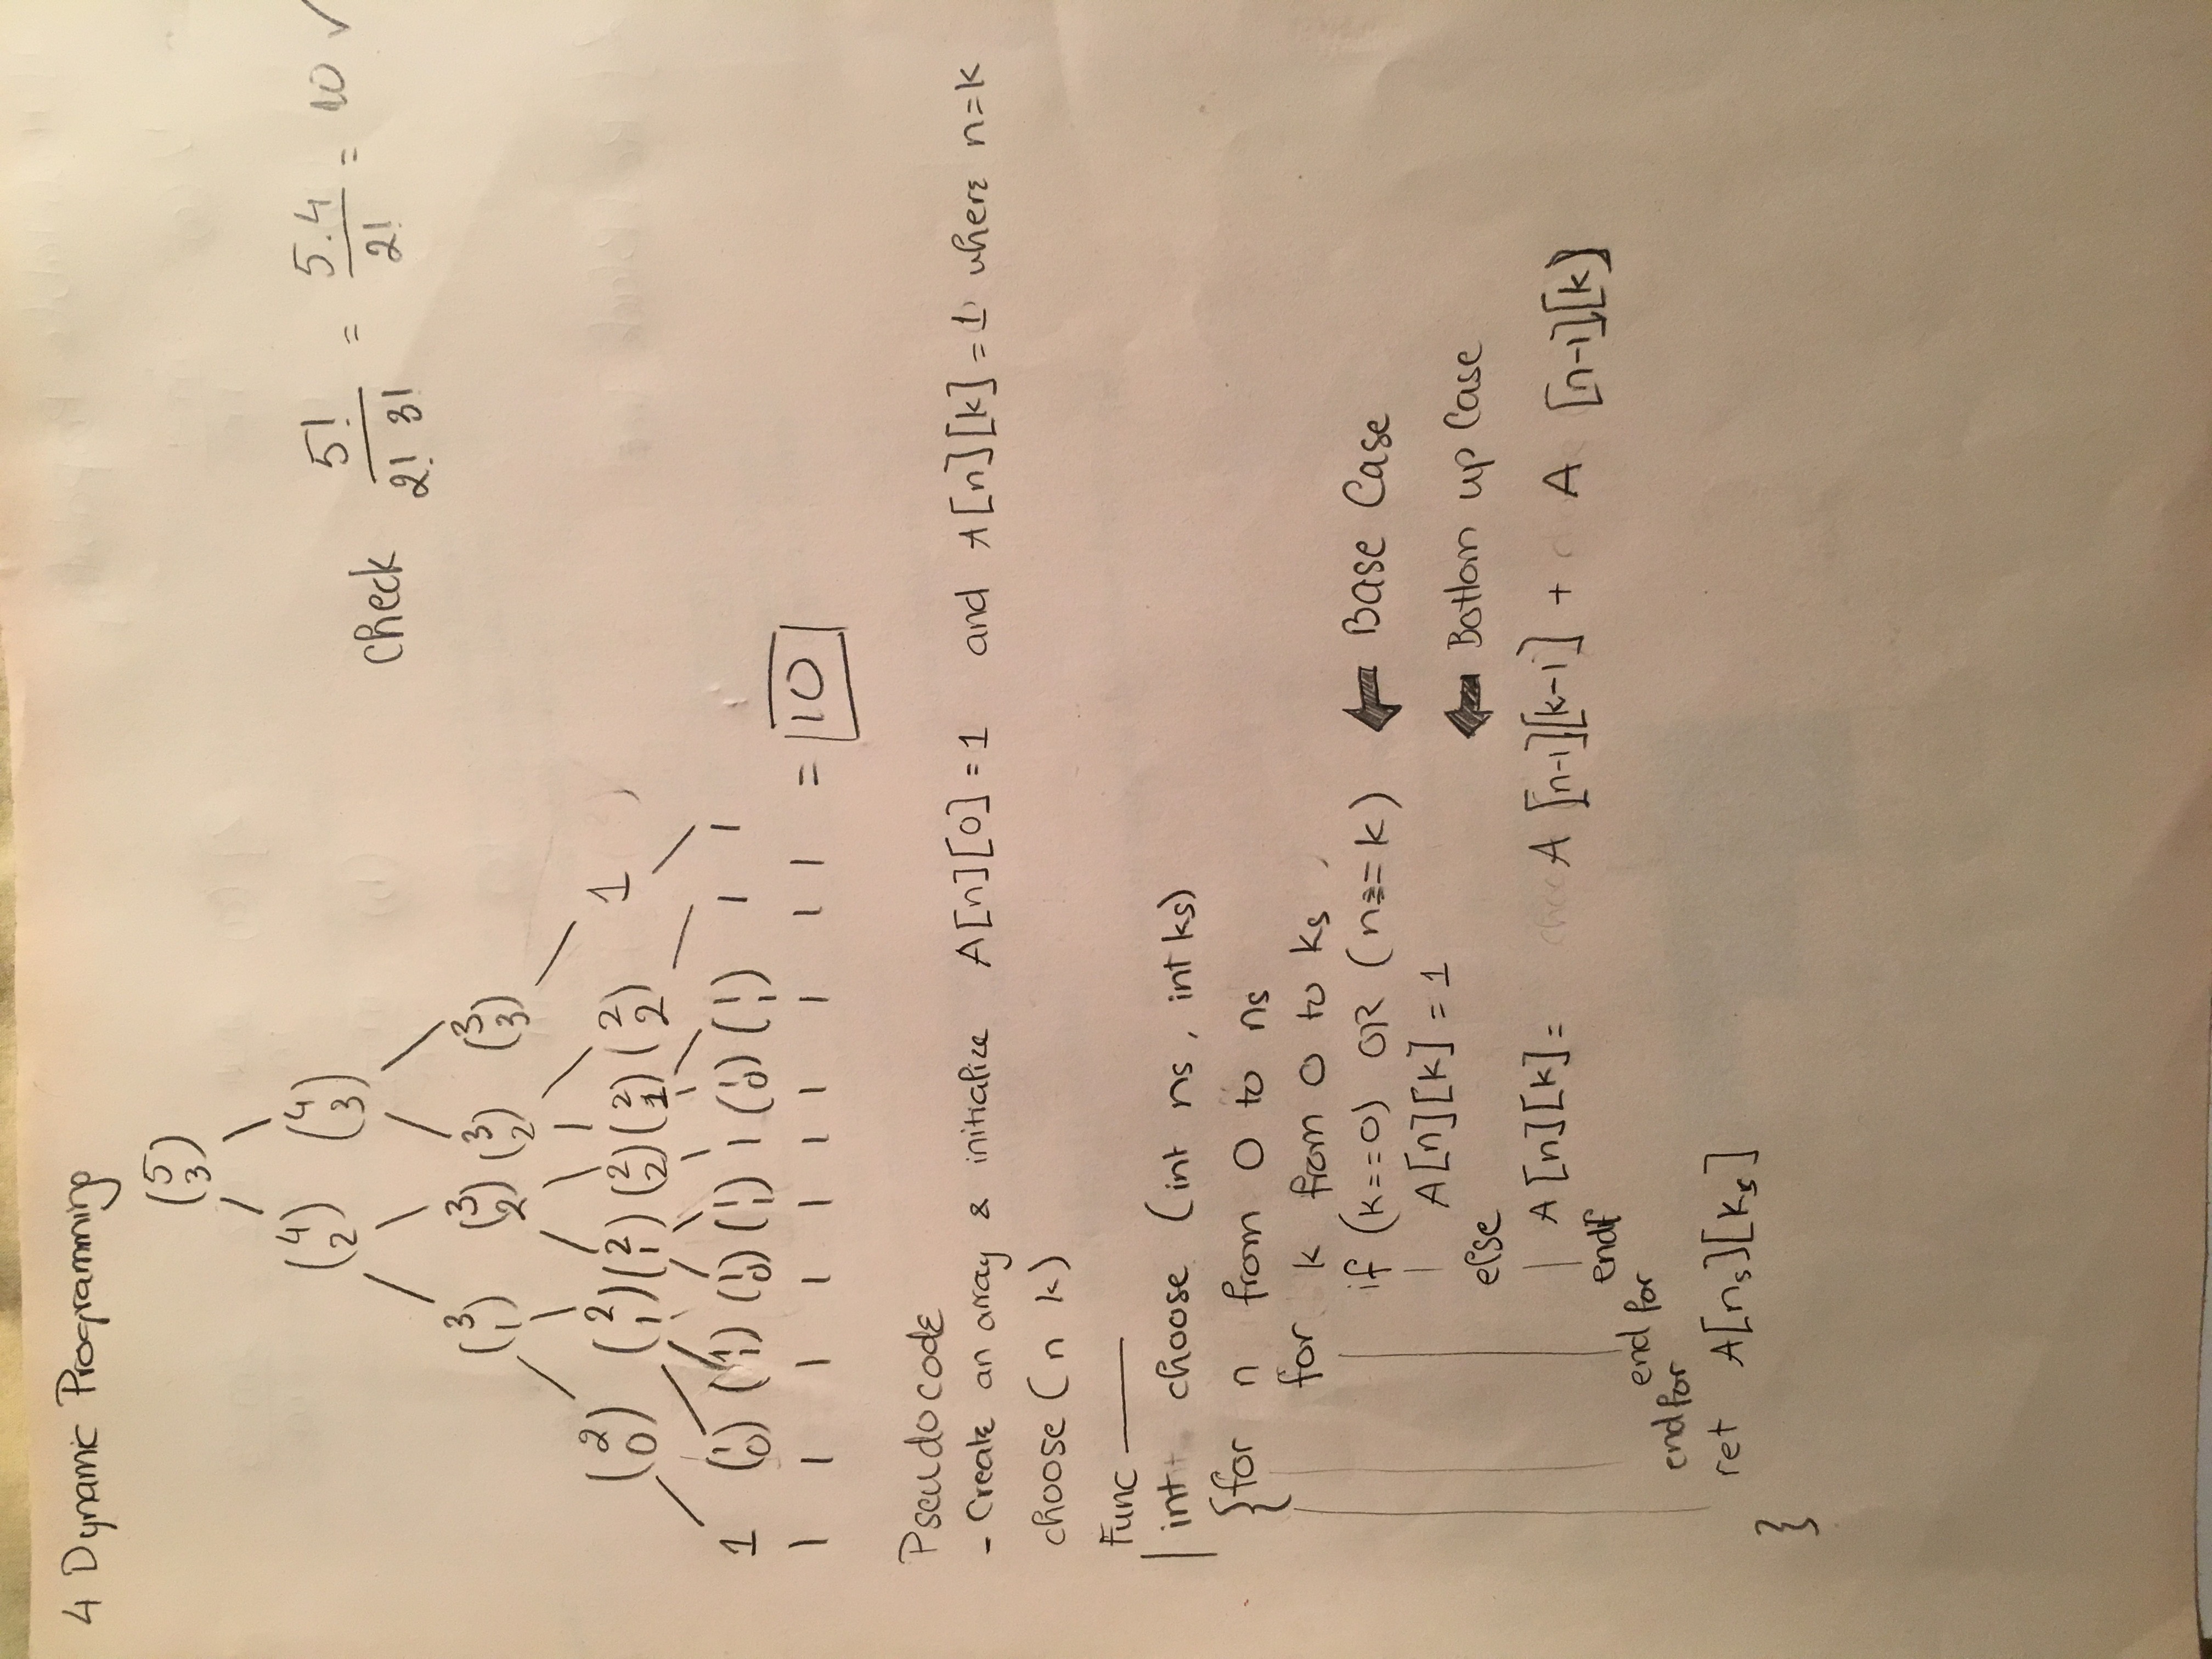 4 Dynamic Programming
(5 3)
(4 2) (4 3)
check 5! / 2! 3! = 5.4 / 2! = 10 ✓
(3 1) (3 2) (3 2) (3 3)
(2 0) (2 1) (2 1) (2 2) (2 1) (2 2) 1
1 (1 0) (1 1) (1 0) (1 1) 1 (1 0) (1 1) 1 1
1 1 1 1 1 1 1 1 1 1 = 10
Pseudocode
- Create an array & initialize A[n][0] = 1 and A[n][k] = 1 where n=k
choose (n k)
Func
int choose (int ns, int ks)
{for n from 0 to ns
for k from 0 to ks
if (k==0) OR (n==k) ← Base Case
A[n][k] = 1
else ← Bottom up Case
A[n][k] = A [n-1][k-1] + A [n-1][k]
endif
end for
endfor
ret A[ns][ks]
}